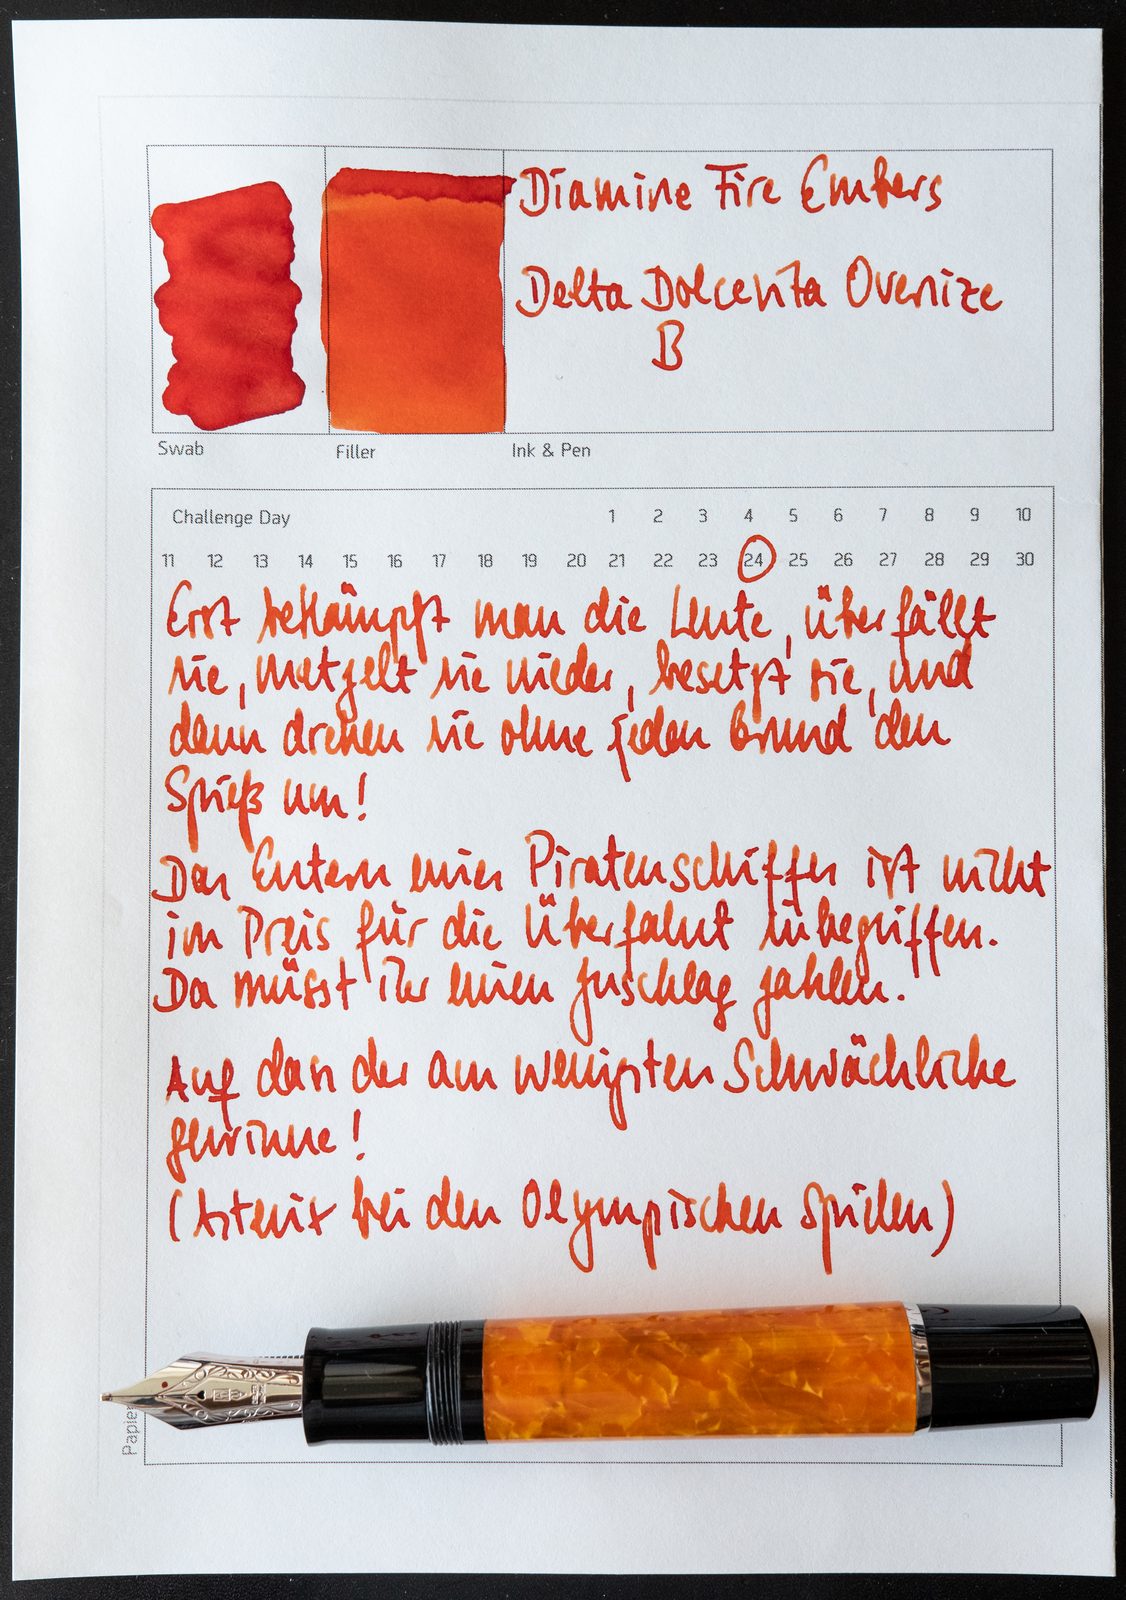 Diamine Fire Embers
Delta Dolcevita Oversize
B
Swab Filler Ink & Pen
Challenge Day 1 2 3 4 5 6 7 8 9 10
11 12 13 14 15 16 17 18 19 20 21 22 23 24 25 26 27 28 29 30
Erst bekämpft man die Leute, überfällt
sie, metzelt sie nieder, besetzt sie, und
dann drehen sie ohne jeden Grund den
Spieß um!
Das Entern eines Piratenschiffes ist nicht
im Preis für die Überfahrt inbegriffen.
Da müsst ihr einen Zuschlag zahlen.
Auf dass der am wenigsten Schwächliche
gewinne!
(Asterix bei den Olympischen Spielen)
Papier